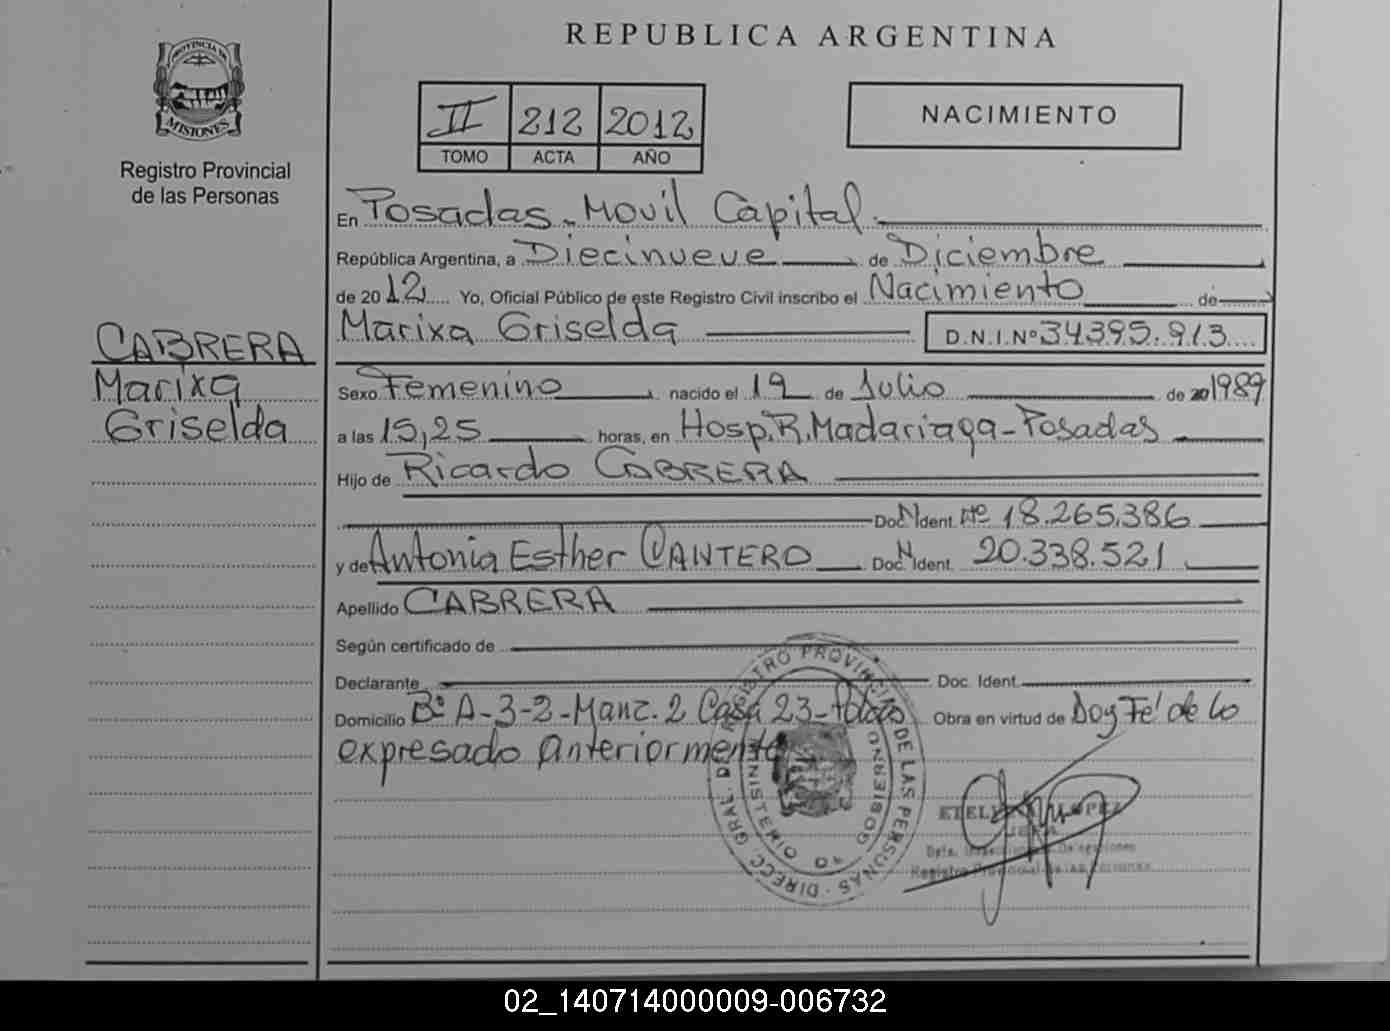 REPUBLICA ARGENTINA
PROVINCIA DE
MISIONES
Registro Provincial
de las Personas
II 212 2012
TOMO ACTA AÑO
NACIMIENTO
En Posadas - Movil Capital.
República Argentina, a Diecinueve de Diciembre
de 2012 Yo, Oficial Público de este Registro Civil inscribo el Nacimiento de
Marixa Griselda D.N.I.Nº 34395.913
CABRERA
Marixa
Griselda
Sexo Femenino nacido el 19 de Julio de 20 1989
a las 15,25 horas, en Hosp. R. Madariaga - Posadas
Hijo de Ricardo CABRERA
Doc. N Ident. Nº 18.265.386
y de Antonia Esther CANTERO Doc. N Ident. 20.338.521
Apellido CABRERA
Según certificado de
Declarante Doc. Ident.
Domicilio Bº A-3-2-Manz. 2 Casa 23- Obra en virtud de Doy Fé de lo
expresado anteriormente
DIRECC. GRAL. DE REGISTRO PROVINCIAL DE LAS PERSONAS
MINISTERIO DE GOBIERNO
LOPEZ
JEFA
Registro Provincial de las Personas
02_140714000009-006732